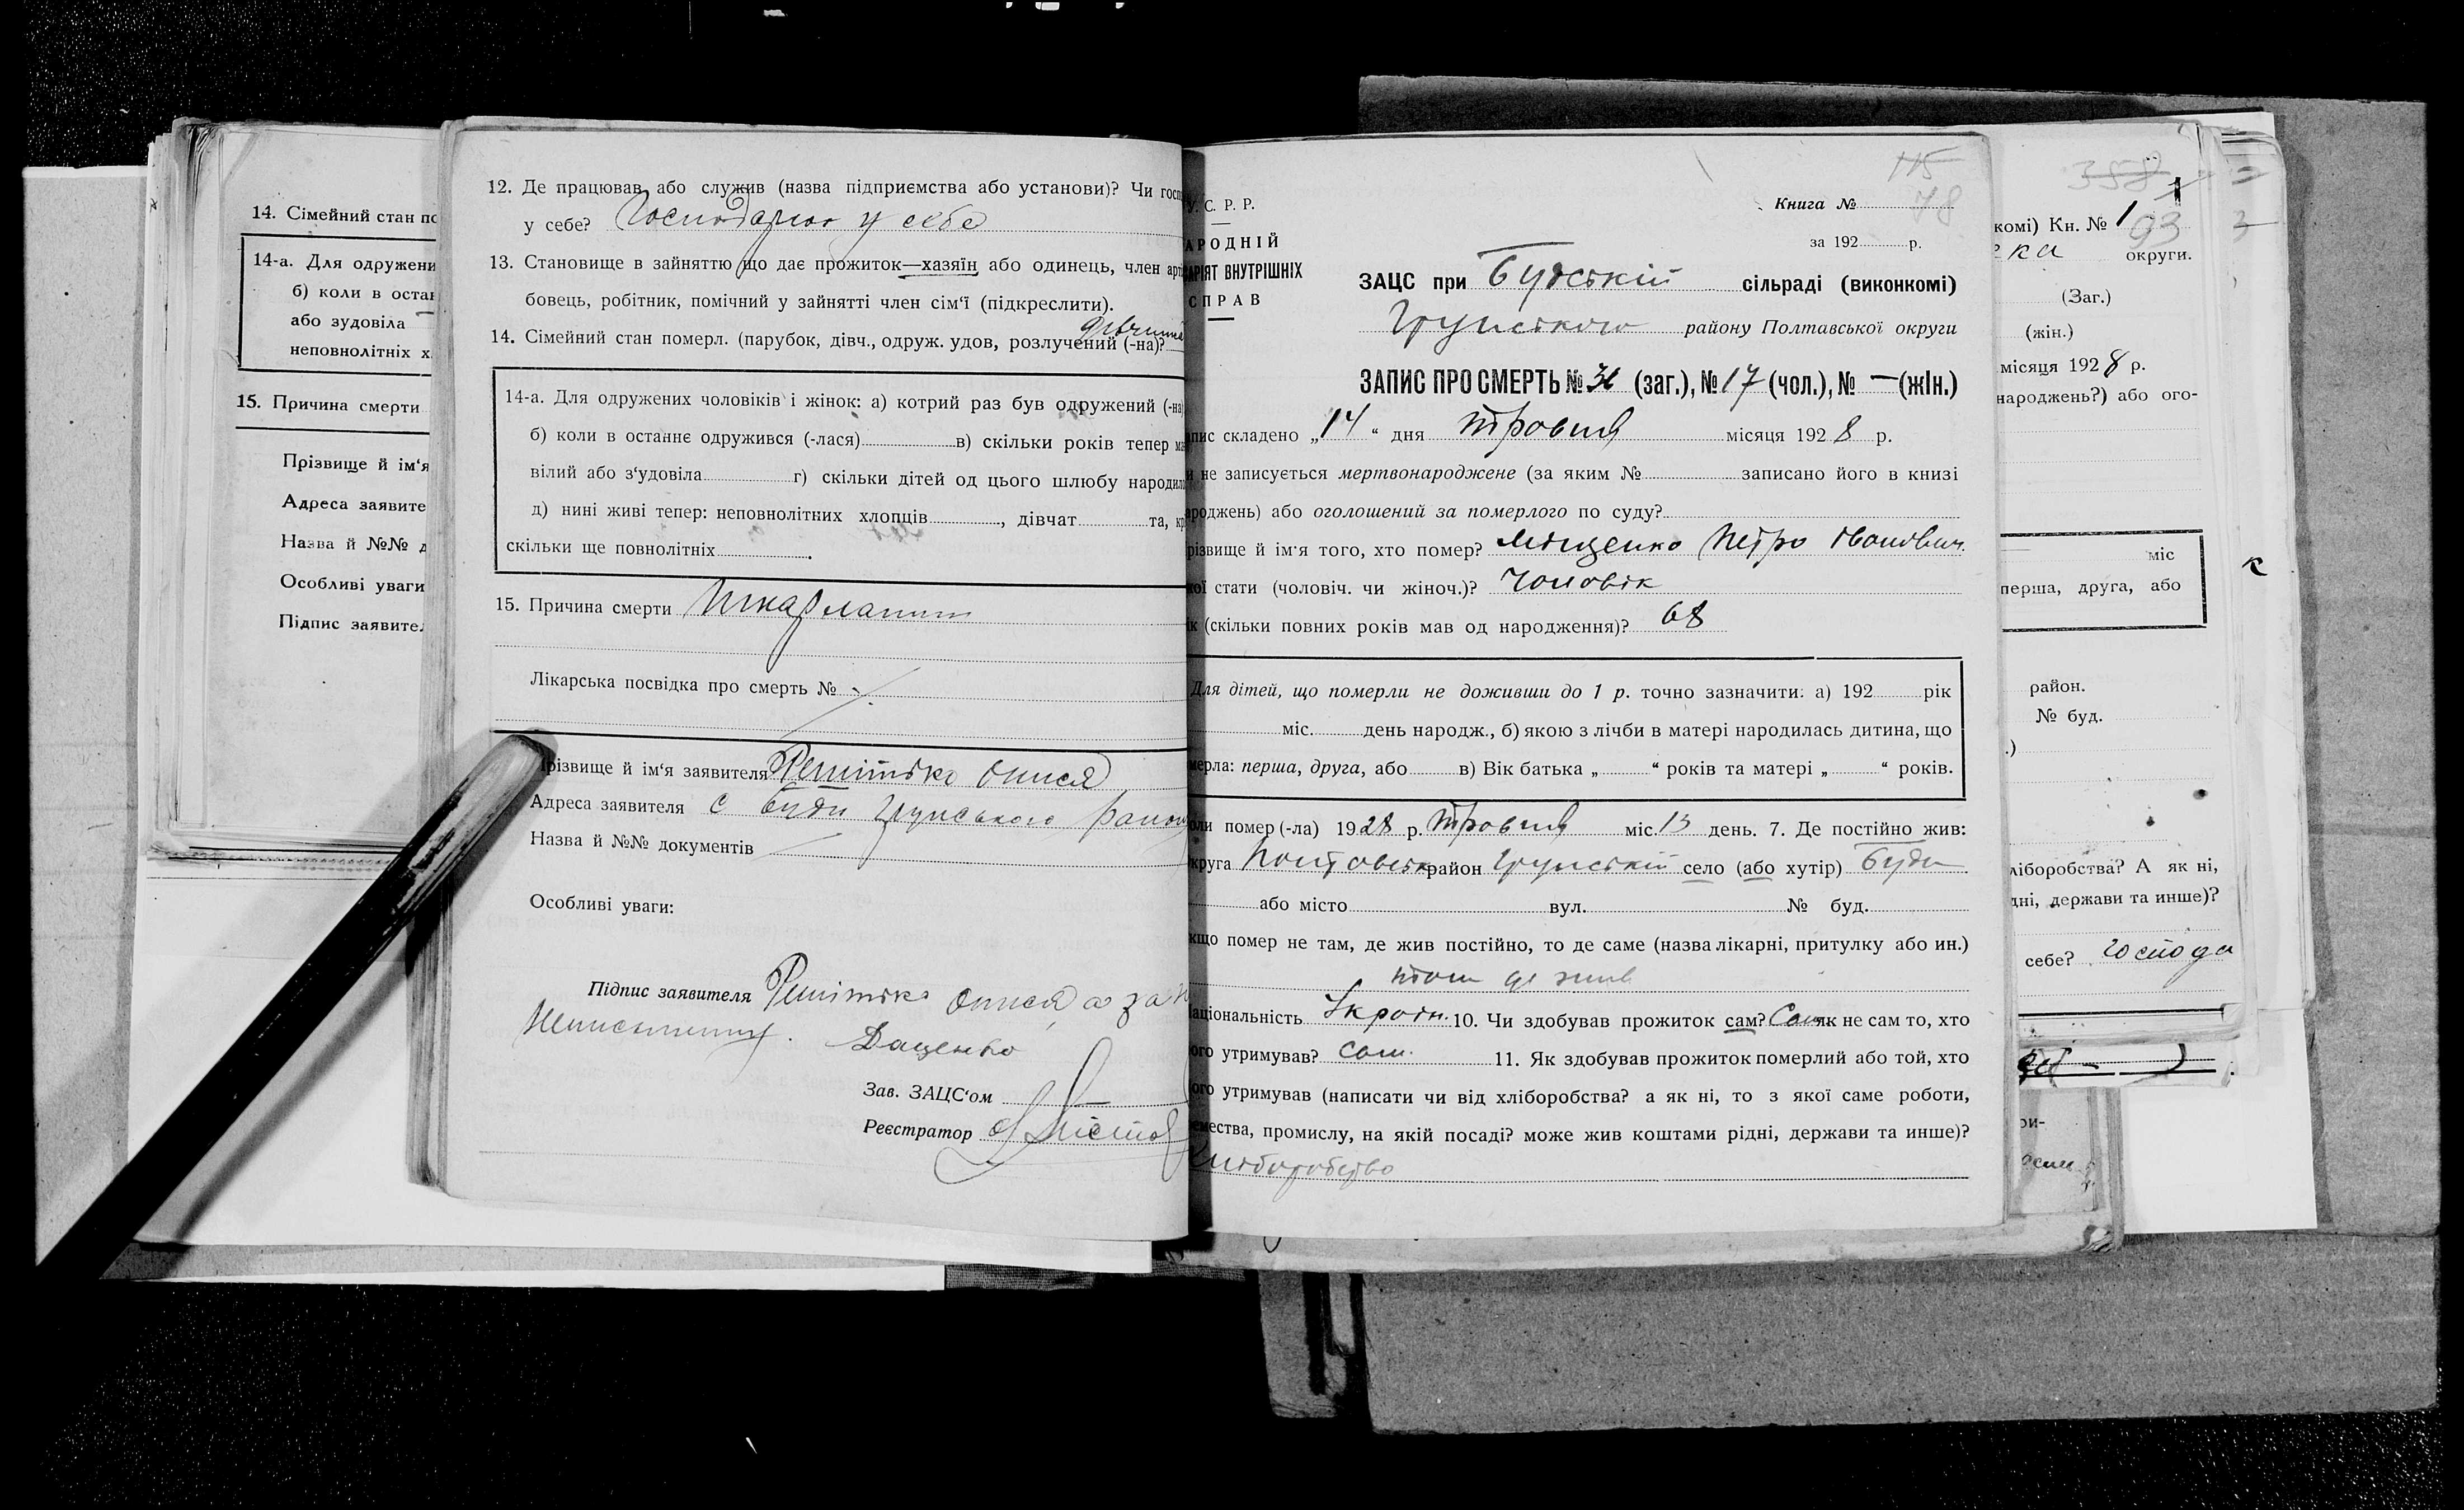 14. Сімейний стан по
14-а. Для одружени
б) коли в остан
або зудовіла
неповнолітніх х
15. Причина смерти
Прізвище й ім'я
Адреса заявите
Назва й №№ д
Особливі уваги
Підпис заявител
12. Де працював або служив (назва підприємства або установи)? Чи госп
у себе? Господарює у себе
13. Становище в зайняттю що дає прожиток—хазяїн або одинець, член арті
бовець, робітник, помічний у зайнятті член сім'ї (підкреслити).
14. Сімейний стан померл. (парубок, дівч., одруж. удов, розлучений (-на)? дівчина
14-а. Для одружених чоловіків і жінок: а) котрий раз був одружений (-на)
б) коли в останнє одружився (-лася) в) скільки років тепер ма
вілий або з'удовіла г) скільки дітей од цього шлюбу народил
д) нині живі тепер: неповнолітних хлопців , дівчат та, кр
скільки ще повнолітніх .
15. Причина смерти Шкарлатин
Лікарська посвідка про смерть №
Прізвище й ім'я заявителя Решітько Онися
Адреса заявителя С Буди Грунського району
Назва й №№ документів
Особливі уваги:
Підпис заявителя Решітько Онися, а за
Неписьменну. Даценко
Зав. ЗАЦС'ом
Реєстратор
У. С. Р. Р.
АРОДНІЙ
АРІЯТ ВНУТРІШНІХ
СПРАВ
115
78
Книга №
за 192 р.
ЗАЦС при Будській сільраді (виконкомі)
Грунського району Полтавської округи
ЗАПИС ПРО СМЕРТЬ № 31 (заг.), № 17 (чол.), № — (жін.)
пис складено „14“ дня Травня місяця 1928 р.
и не записується мертвонароджене (за яким № записано його в книзі
ароджень) або оголошений за померлого по суду?
різвище й ім'я того, хто помер? Міщенко Петро Іванович.
кої стати (чоловіч. чи жіноч.)? Чоловік
ік (скільки повних років мав од народження)? 68
Для дітей, що померли не доживши до 1 р. точно зазначити: а) 192 рік
міс. день народж., б) якою з лічби в матері народилась дитина, що
мерла: перша, друга, або в) Вік батька „ “ років та матері „ “ років.
оли помер (-ла) 1928 р. Травня міс. 13 день. 7. Де постійно жив:
круга Полтовськ район Грунській село (або хутір) Буди
або місто вул. № буд.
кщо помер не там, де жив постійно, то де саме (назва лікарні, притулку або ин.)
там де жив
аціональність Україн. 10. Чи здобував прожиток сам? Сам як не сам то, хто
ого утримував? сам. 11. Як здобував прожиток померлий або той, хто
ого утримував (написати чи від хліборобства? а як ні, то з якої саме роботи,
емества, промислу, на якій посаді? може жив коштами рідні, держави та инше)?
Хліборобство
358
1
93
комі) Кн. № 1
ка округи.
(Заг.)
(жін.)
місяця 1928 р.
народжень?) або ого-
міс
перша, друга, або
район.
№ буд.
.)
ліборобства? А як ні,
дні, держави та инше)?
себе? господа
ри-